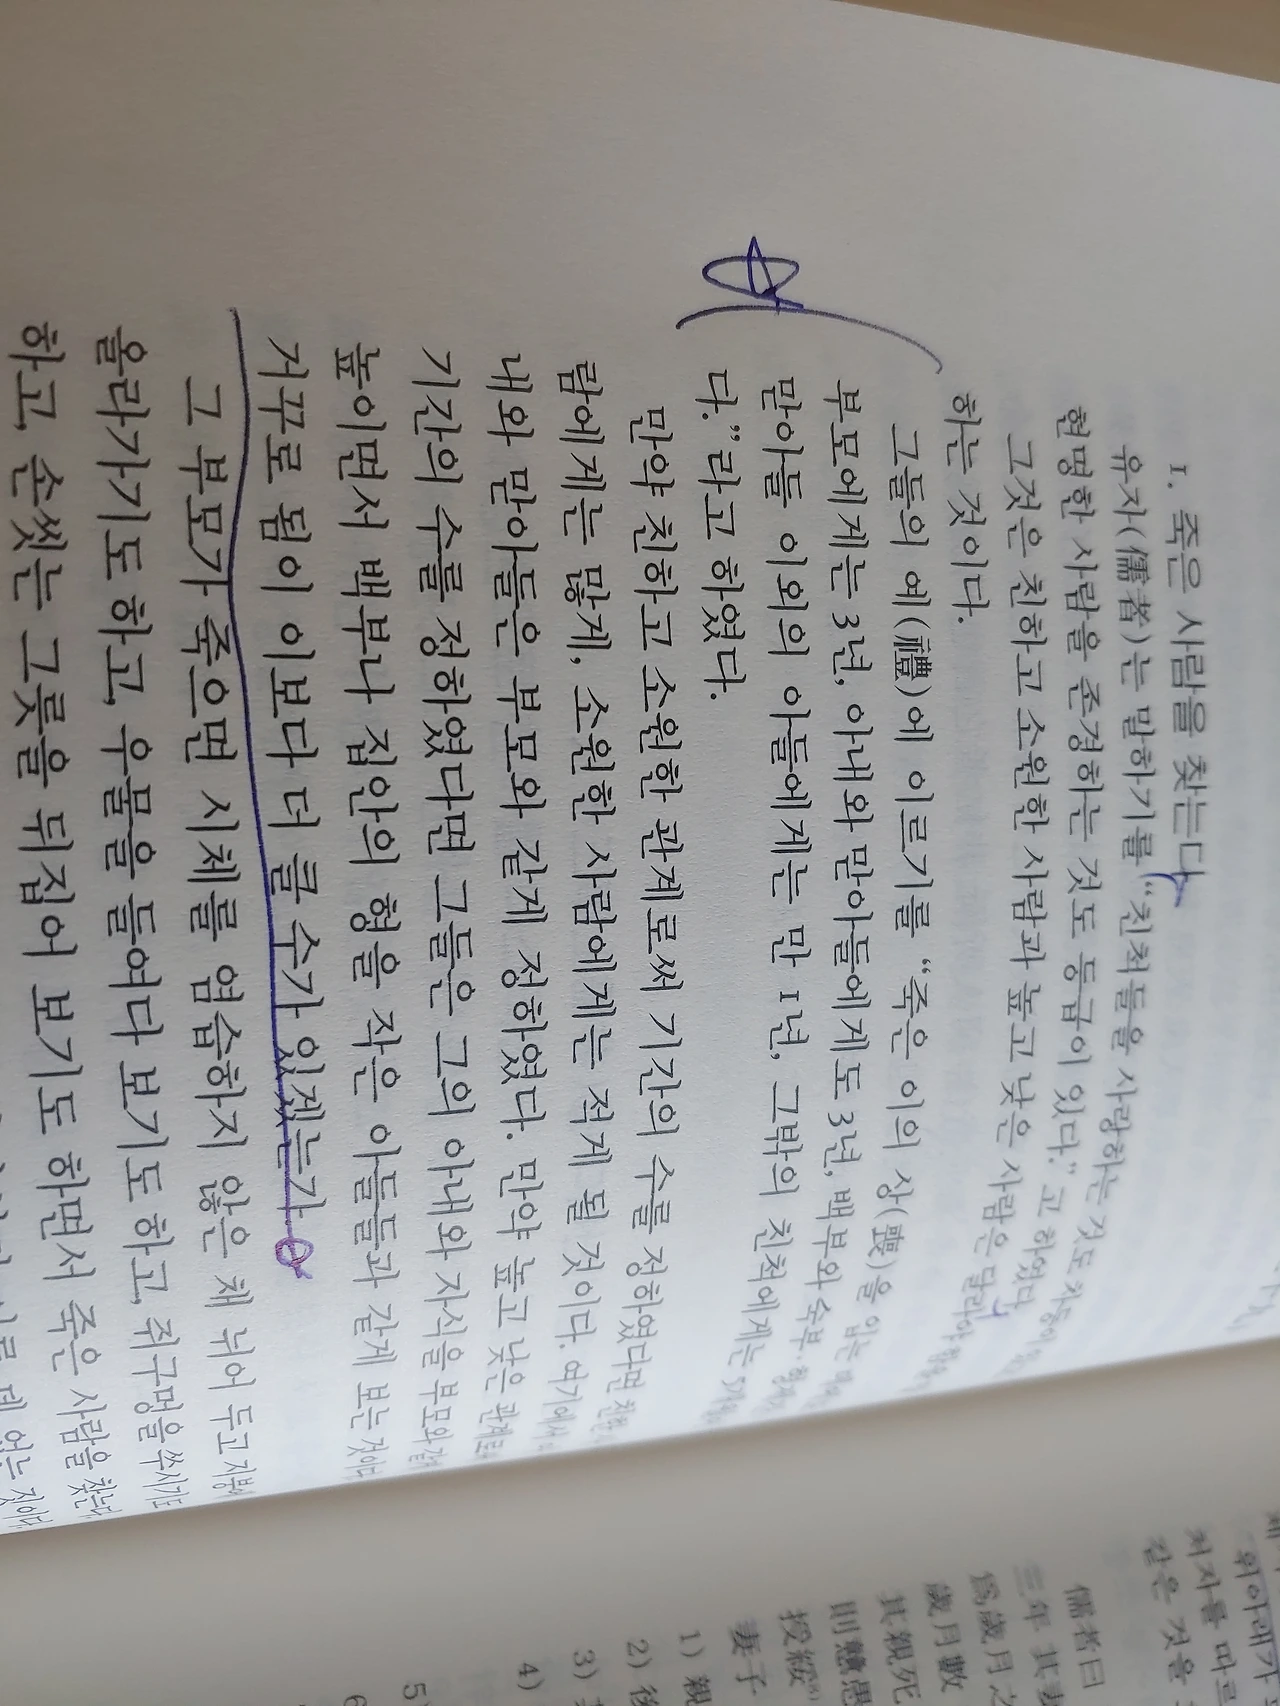 1. 죽은 사람을 찾는다
유자(儒者)는 말하기를 “친척들을 사랑하는 것도 차등이
현명한 사람을 존경하는 것도 등급이 있다.” 고 하였다
그것은 친하고 소원한 사람과 높고 낮은 사람은 달라야
하는 것이다.
그들의 예(禮)에 이르기를 “죽은 이의 상(喪)을 입는
부모에게는 3년, 아내와 맏아들에게도 3년, 백부와 숙부·
맏아들 이외의 아들에게는 만 1년, 그밖의 친척에게는 5개월
다.”라고 하였다.
만약 친하고 소원한 관계로써 기간의 수를 정하였다면 친한
람에게는 많게, 소원한 사람에게는 적게 될 것이다. 여기에서
내와 맏아들은 부모와 같게 정하였다. 만약 높고 낮은 관계로써
기간의 수를 정하였다면 그들은 그의 아내와 자식을 부모와 같게
높이면서 백부나 집안의 형을 작은 아들들과 같게 보는 것이다
거꾸로 됨이 이보다 더 클 수가 있겠는가
그 부모가 죽으면 시체를 염습하지 않은 채 뉘어 두고 지붕에
올라가기도 하고, 우물을 들여다 보기도 하고, 쥐구멍을 쑤시기도
하고, 손씻는 그릇을 뒤집어 보기도 하면서 죽은 사람을 찾는다
없는 것이다
위아래가
처자를 따르
같은 것을
儒者曰
三年 其
爲歲月之
歲月數
其親死
則戇愚
授綏
妻子
1) 親
2) 後
3)
4)
5)
6